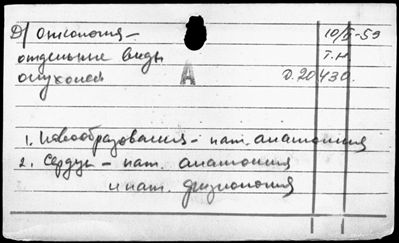 Д/ Онкология – 10/II-59
отдельные виды Т.Н.
опухолей А Д.20430.
1. Новообразования – пат. анатомия
2. Сердце – пат. анатомия
и пат. физиология